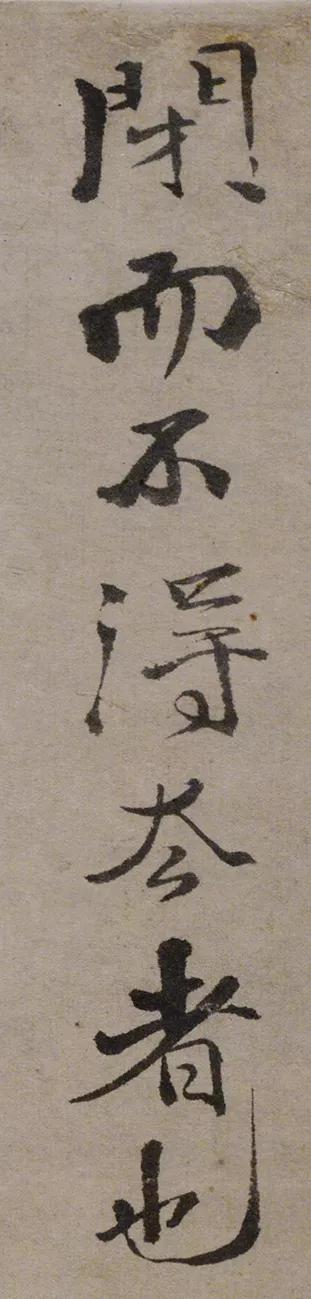 閉而不得去者也